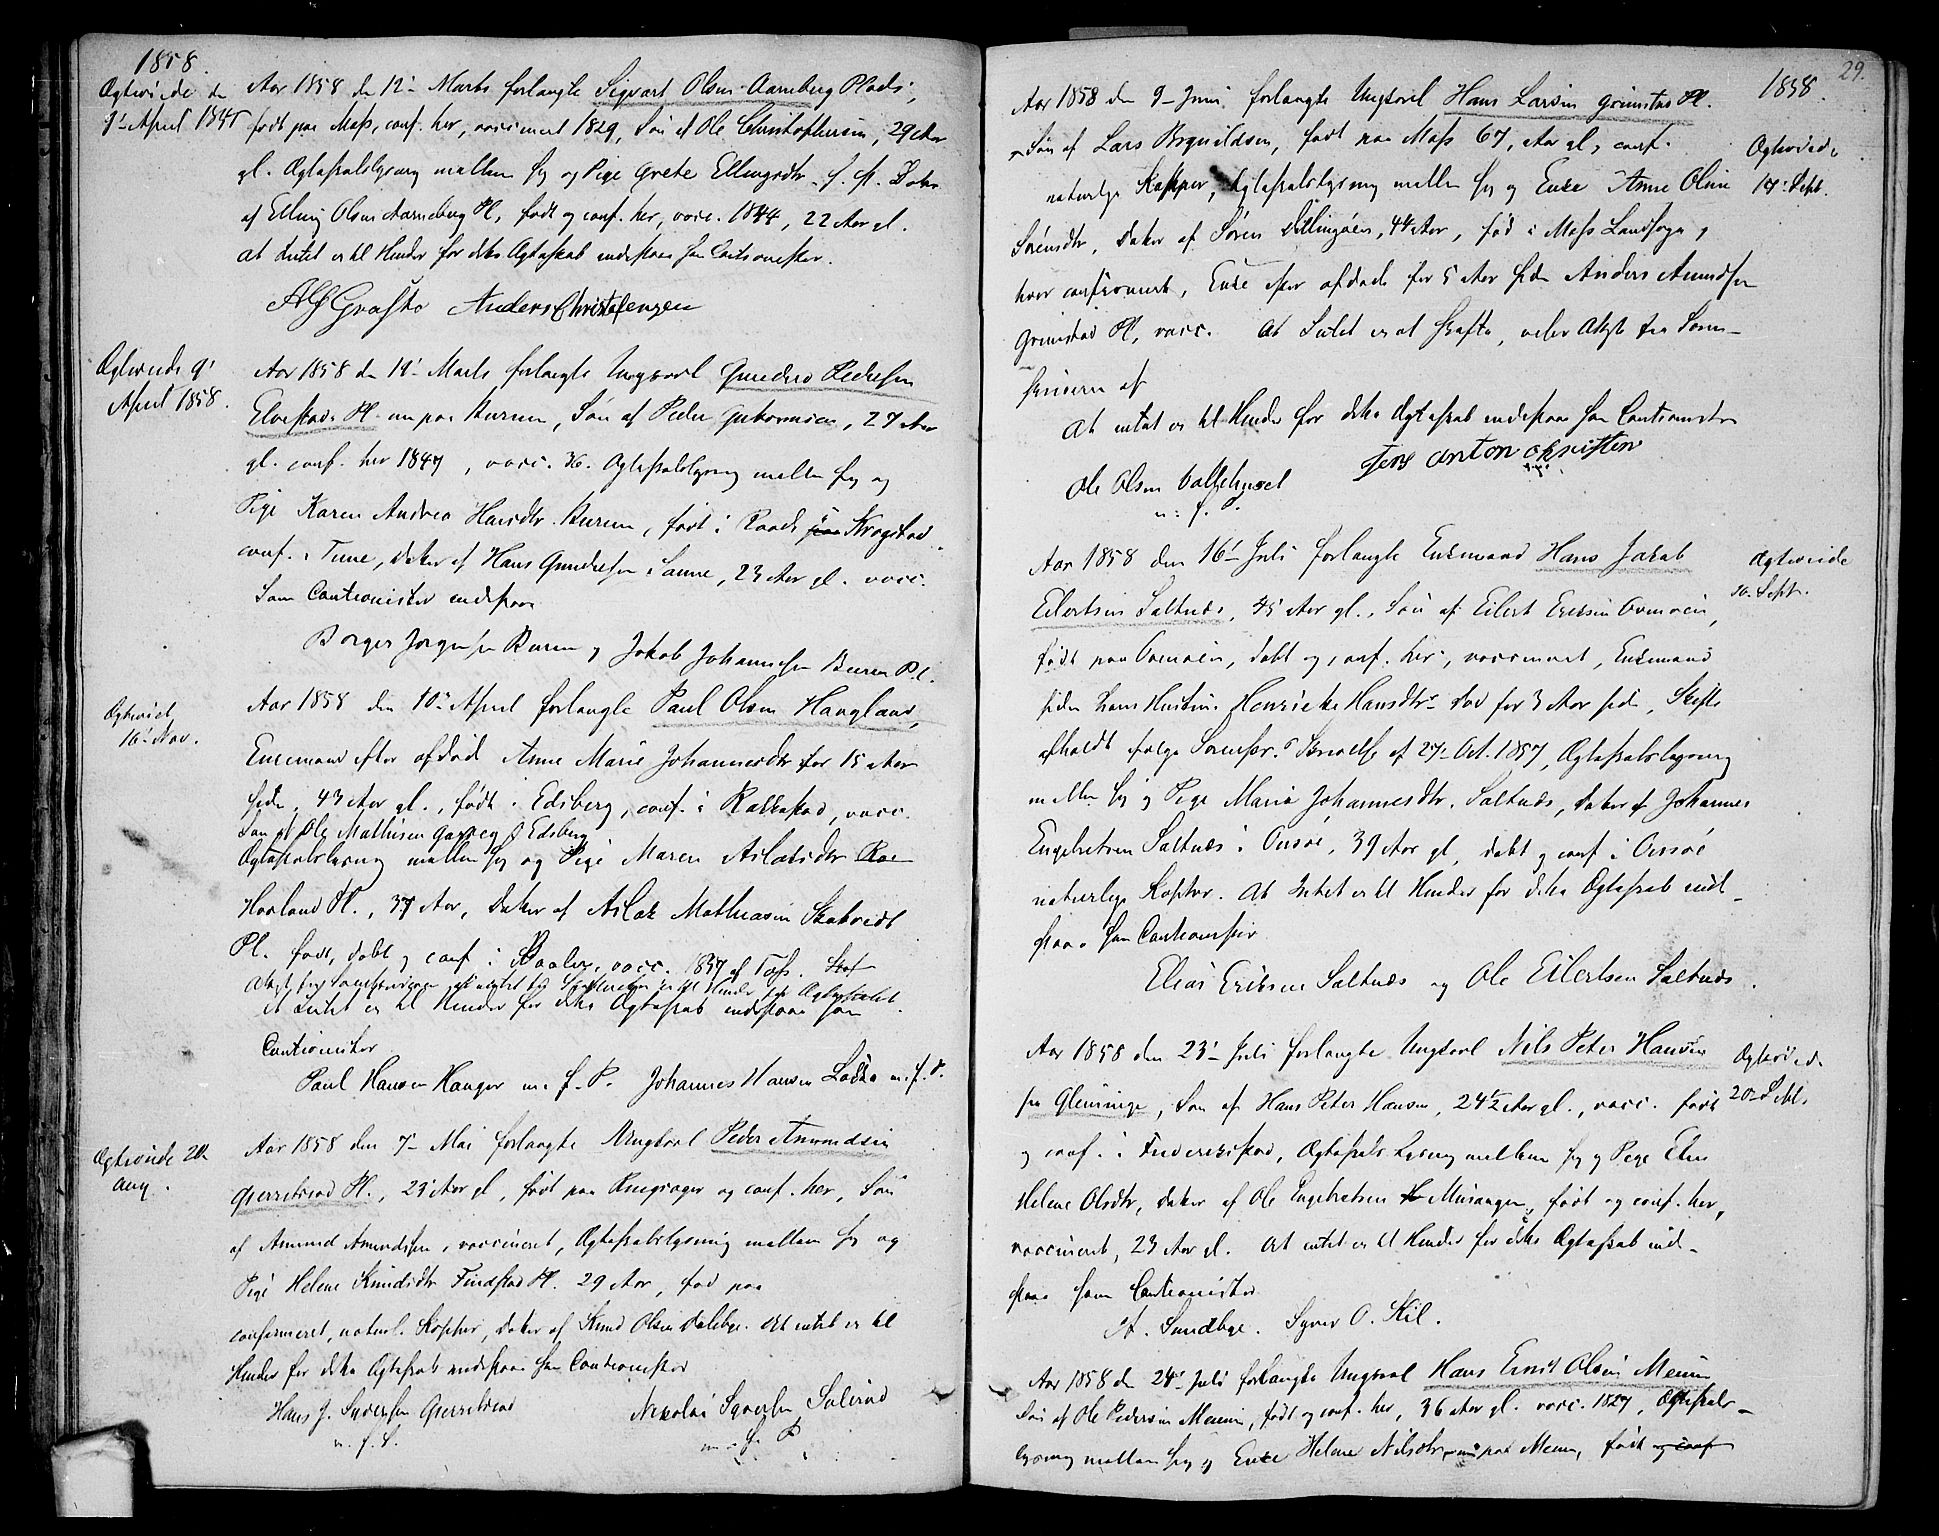 1858.
Ægteviede de
9' April
Aar 1858 d. 12' Marts forlangte Sigvart Olsen Aarneberg Plads,
født paa Moss, conf. her, vaccineret 1829, Søn af Ole Christophersen, 29 Aar
gl. Ægteskabslysning mellem sig og Pige Grete Ellingsdtr. s. St. Datter
af Elling Olsen Aarneberg Pl, født og conf. her, vacc. 1844, 22 Aar gl.
At Intet er til Hinder for dette Ægteskab indestaar som Cautionister.
Anders Christofersen
Ægteviede 9'
April 1858.
Aar 1858 d. 14' Marts forlangte Ungkarl Gunders Pedersen
Elvestad Pl. nu paa Buren, Søn af Peder, 27 Aar
gl. conf. her 1847, vacc. Ægteskabslysning mellem sig og
Pige Karen Andrea Hansdtr. Buren, født i Raade Krogstad
conf. i Tune, Datter af Hans Gundersen Sanne, 23 Aar gl. vacc.
Som Cautionister indestaar
Borger Jørgensen Buren og Jakob Johannesen Buren Pl.
Ægteviet
16' Nov.
Aar 1858 den 10' April forlangte Paul Olsen Haugland,
Enkemand efter afdød Anne Marie Johannesdtr for 15 Aar
siden, 43 Aar gl., født i Edsberg, conf. i Rakkestad, vacc.
Søn af Ole Mathisen i Edsberg
Ægteskabslysning mellem sig og Pige Maren Aslaksdtr
Haaland Pl., 37 Aar, Datter af Aslak Mathiasen Skabvedt
Pl. født, døbt og conf. i Vaaler, vacc. 1837 af
At Intet er til Hinder for dette Ægteskab indestaar som
Cautionister
Paul Hansen Hauger m. f. P. Johannes Hansen m. f. P.
Ægteviede 20
Aug.
Aar 1858 den 7' Mai forlangte Ungkarl Peder Amundsen
Gjerretsrød Pl., 23 Aar gl, født paa Rygge og conf. her, Søn
af Amund Amundsen, vaccineret, Ægteskabslysning mellem sig og
Pige Helene Knudsdtr Findstad Pl. 29 Aar, fød paa
confirmeret, naturl. Kopper, Datter af Knud Olsen Dalebye. At intet er til
Hinder for dette Ægteskab indestaar som Cautionister
Hans J. Syversen Gjerretsrød
m. f. P.
Nikolai Syversen Solerød
m. f. P
29.
1858.
Aar 1858 den 9' Juni forlangte Ungkarl Hans Larsen Grimstad Pl.
Ægteviede
14' Sept.
Søn af Lars, født paa Moss 67, Aar gl, conf.
naturlige Kopper, Ægteskabslysning mellem sig og Enke Anne Oline
Sørensdtr, Datter af Søren Dillingøen, 44 Aar, fød i Moss Landsogn og
hvor confirmeret, Enke efter afdøde for 5 Aar siden Anders Amundsen
Grimstad Pl, vacc. At Intet er at skifte, Attest fra Soren-
skriveren af
At intet er til Hinder for dette Ægteskab indestaar som Cautionister
Jens Anton
Ole Olsen Vallehuset
m. f. P.
Aar 1858 den 16' Juli forlangte Enkemand Hans Jakob
Ægteviede
10. Sept.
Eilertsen Saltnæs, 45 Aar gl., Søn af Eilert Eriksen
født paa, døbt og conf. her, vaccineret, Enkemand
siden hans Hustru Henrikke Hansdtr død for 3 Aar siden, Skifte
afholdt ifølge Sorenskr.s Skrivelse af 27' Oct. 1857, Ægteskabslysning
mellem sig og Pige Maria Johannesdtr. Saltnæs, Datter af Johannes
Engebretsen Saltnæs i Onsøe, 39 Aar gl, døbt og conf i Onsøe
naturlige Kopper. At Intet er til Hinder for dette Ægteskab ind-
staar som Cautionister
Elias Eriksen Saltnæs og Ole Eilertsen Saltnæs.
Aar 1858 den 23' Juli forlangte Ungkarl Nils Peter Hansen
Ægteviede
20' Sept.
fra Gleminge, Søn af Hans Peter Hansen, 24½ Aar gl., vacc. født
og conf. i Frederiksstad, Ægteskabs Lysning mellem sig og Pige Elen
Helene Olsdtr, Datter af Ole Engebretsen Musangen, født og conf. her,
vaccineret, 23 Aar gl. At intet er til Hinder for dette Ægteskab ind-
staar som Cautionister
A. Sundbye. Syver O. Kil.
Aar 1858 d. 24' Juli forlangte Ungkarl Hans Ernst Olsen Meum
Søn af Ole Pedersen Meum, født og conf. her, 36 Aar gl. vacc. 1827, Ægteskabs-
lysning mellem sig og Enke Helene Nilsdtr, paa Meum, født og conf